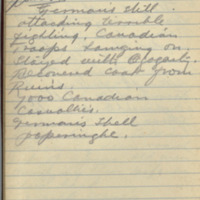 Germans still
attacking terrible
fighting. Canadian
troops hanging on.
Stayed with
Recovered coat from
Ruins.
7000 Canadian
Casualties.
Germans Shell
Poperinghe.